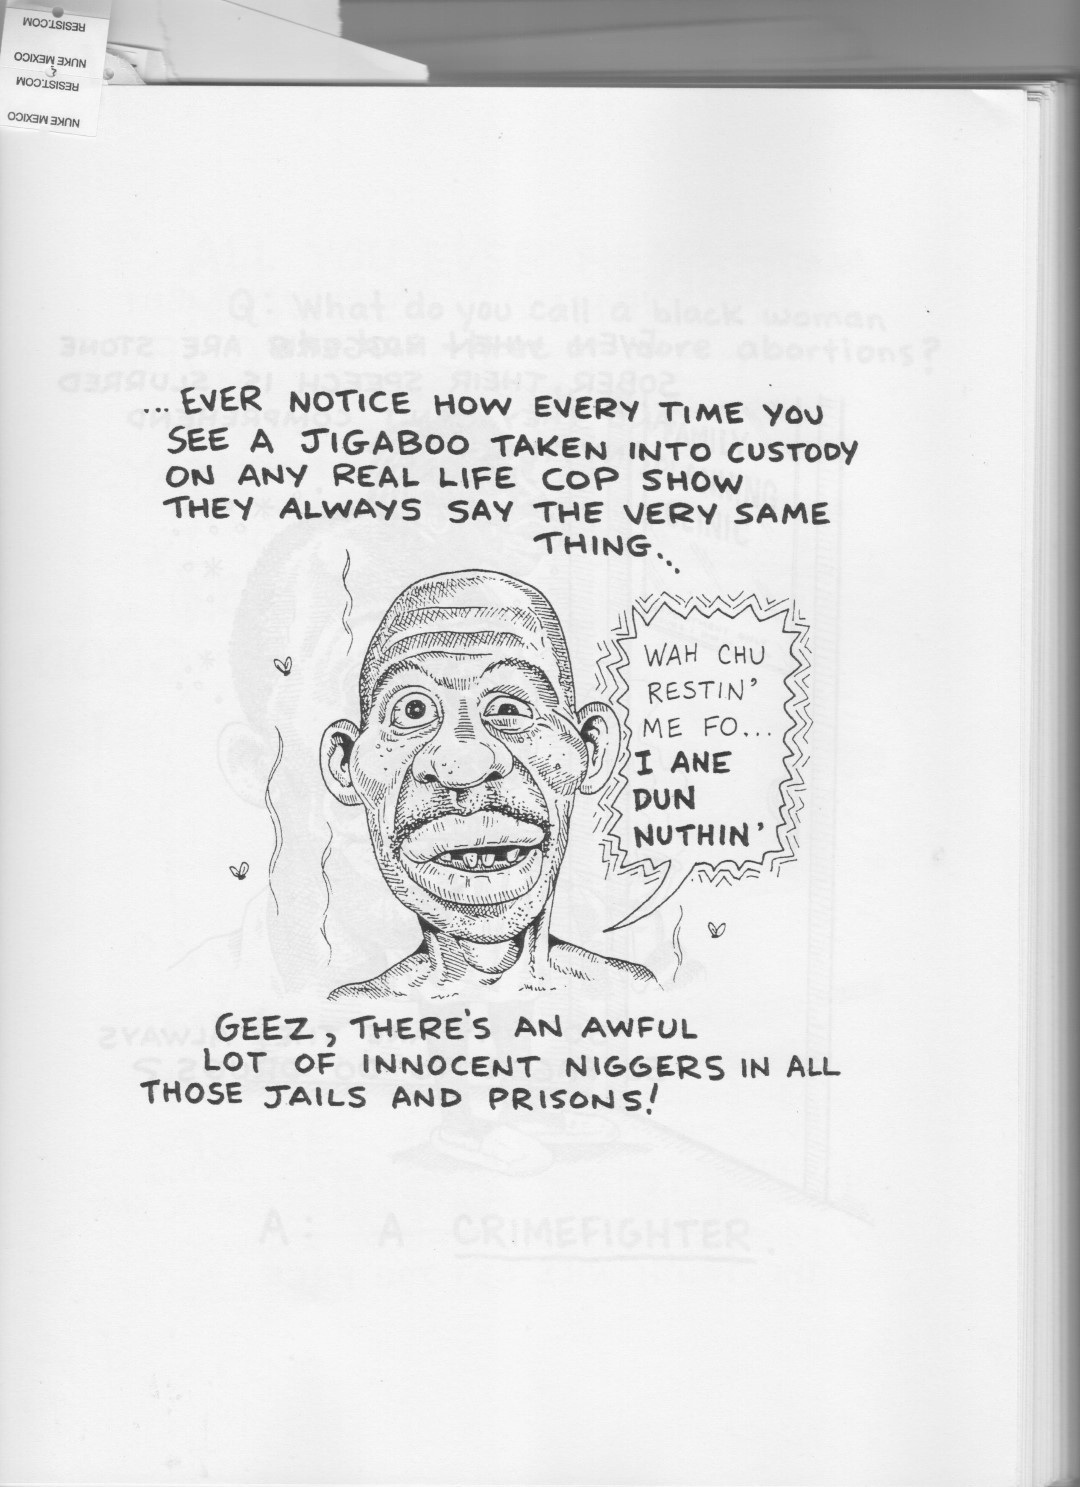 NUKE MEXICO
RESIST.COM
&
NUKE MEXICO
RESIST.COM
Q: What do you call a black woman
abortions?
...EVER NOTICE HOW EVERY TIME YOU
SEE A JIGABOO TAKEN INTO CUSTODY
ON ANY REAL LIFE COP SHOW
THEY ALWAYS SAY THE VERY SAME
THING...
WAH CHU
RESTIN'
ME FO...
I ANE
DUN
NUTHIN'
GEEZ, THERE'S AN AWFUL
LOT OF INNOCENT NIGGERS IN ALL
THOSE JAILS AND PRISONS!
A: A CRIMEFIGHTER.